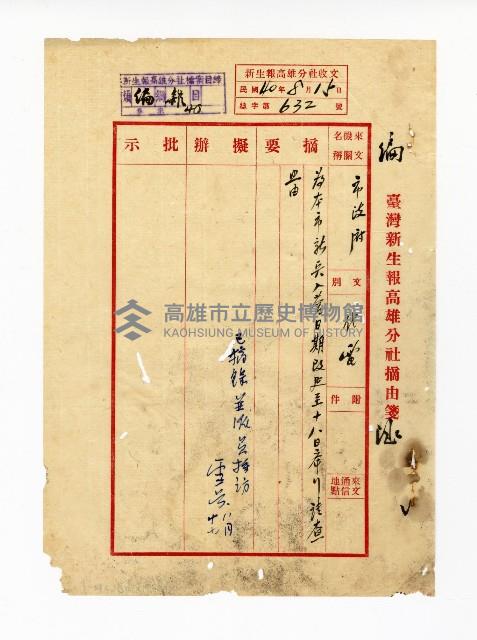 臺灣新生報高雄分社摘由箋
編
新生報高雄分社收文
民國40年8月15日
總字第632號
新生報高雄分社檔案目錄
編 類 雜 目
來文機關名稱
市政府
文別
代電
附件
來文通信地點
摘要
為本市新兵入營日期改延至十八日舉行請查
照由
擬辦
批示
已摘錄並派員採訪
八月
高雄市立歷史博物館
KAOHSIUNG MUSEUM OF HISTORY